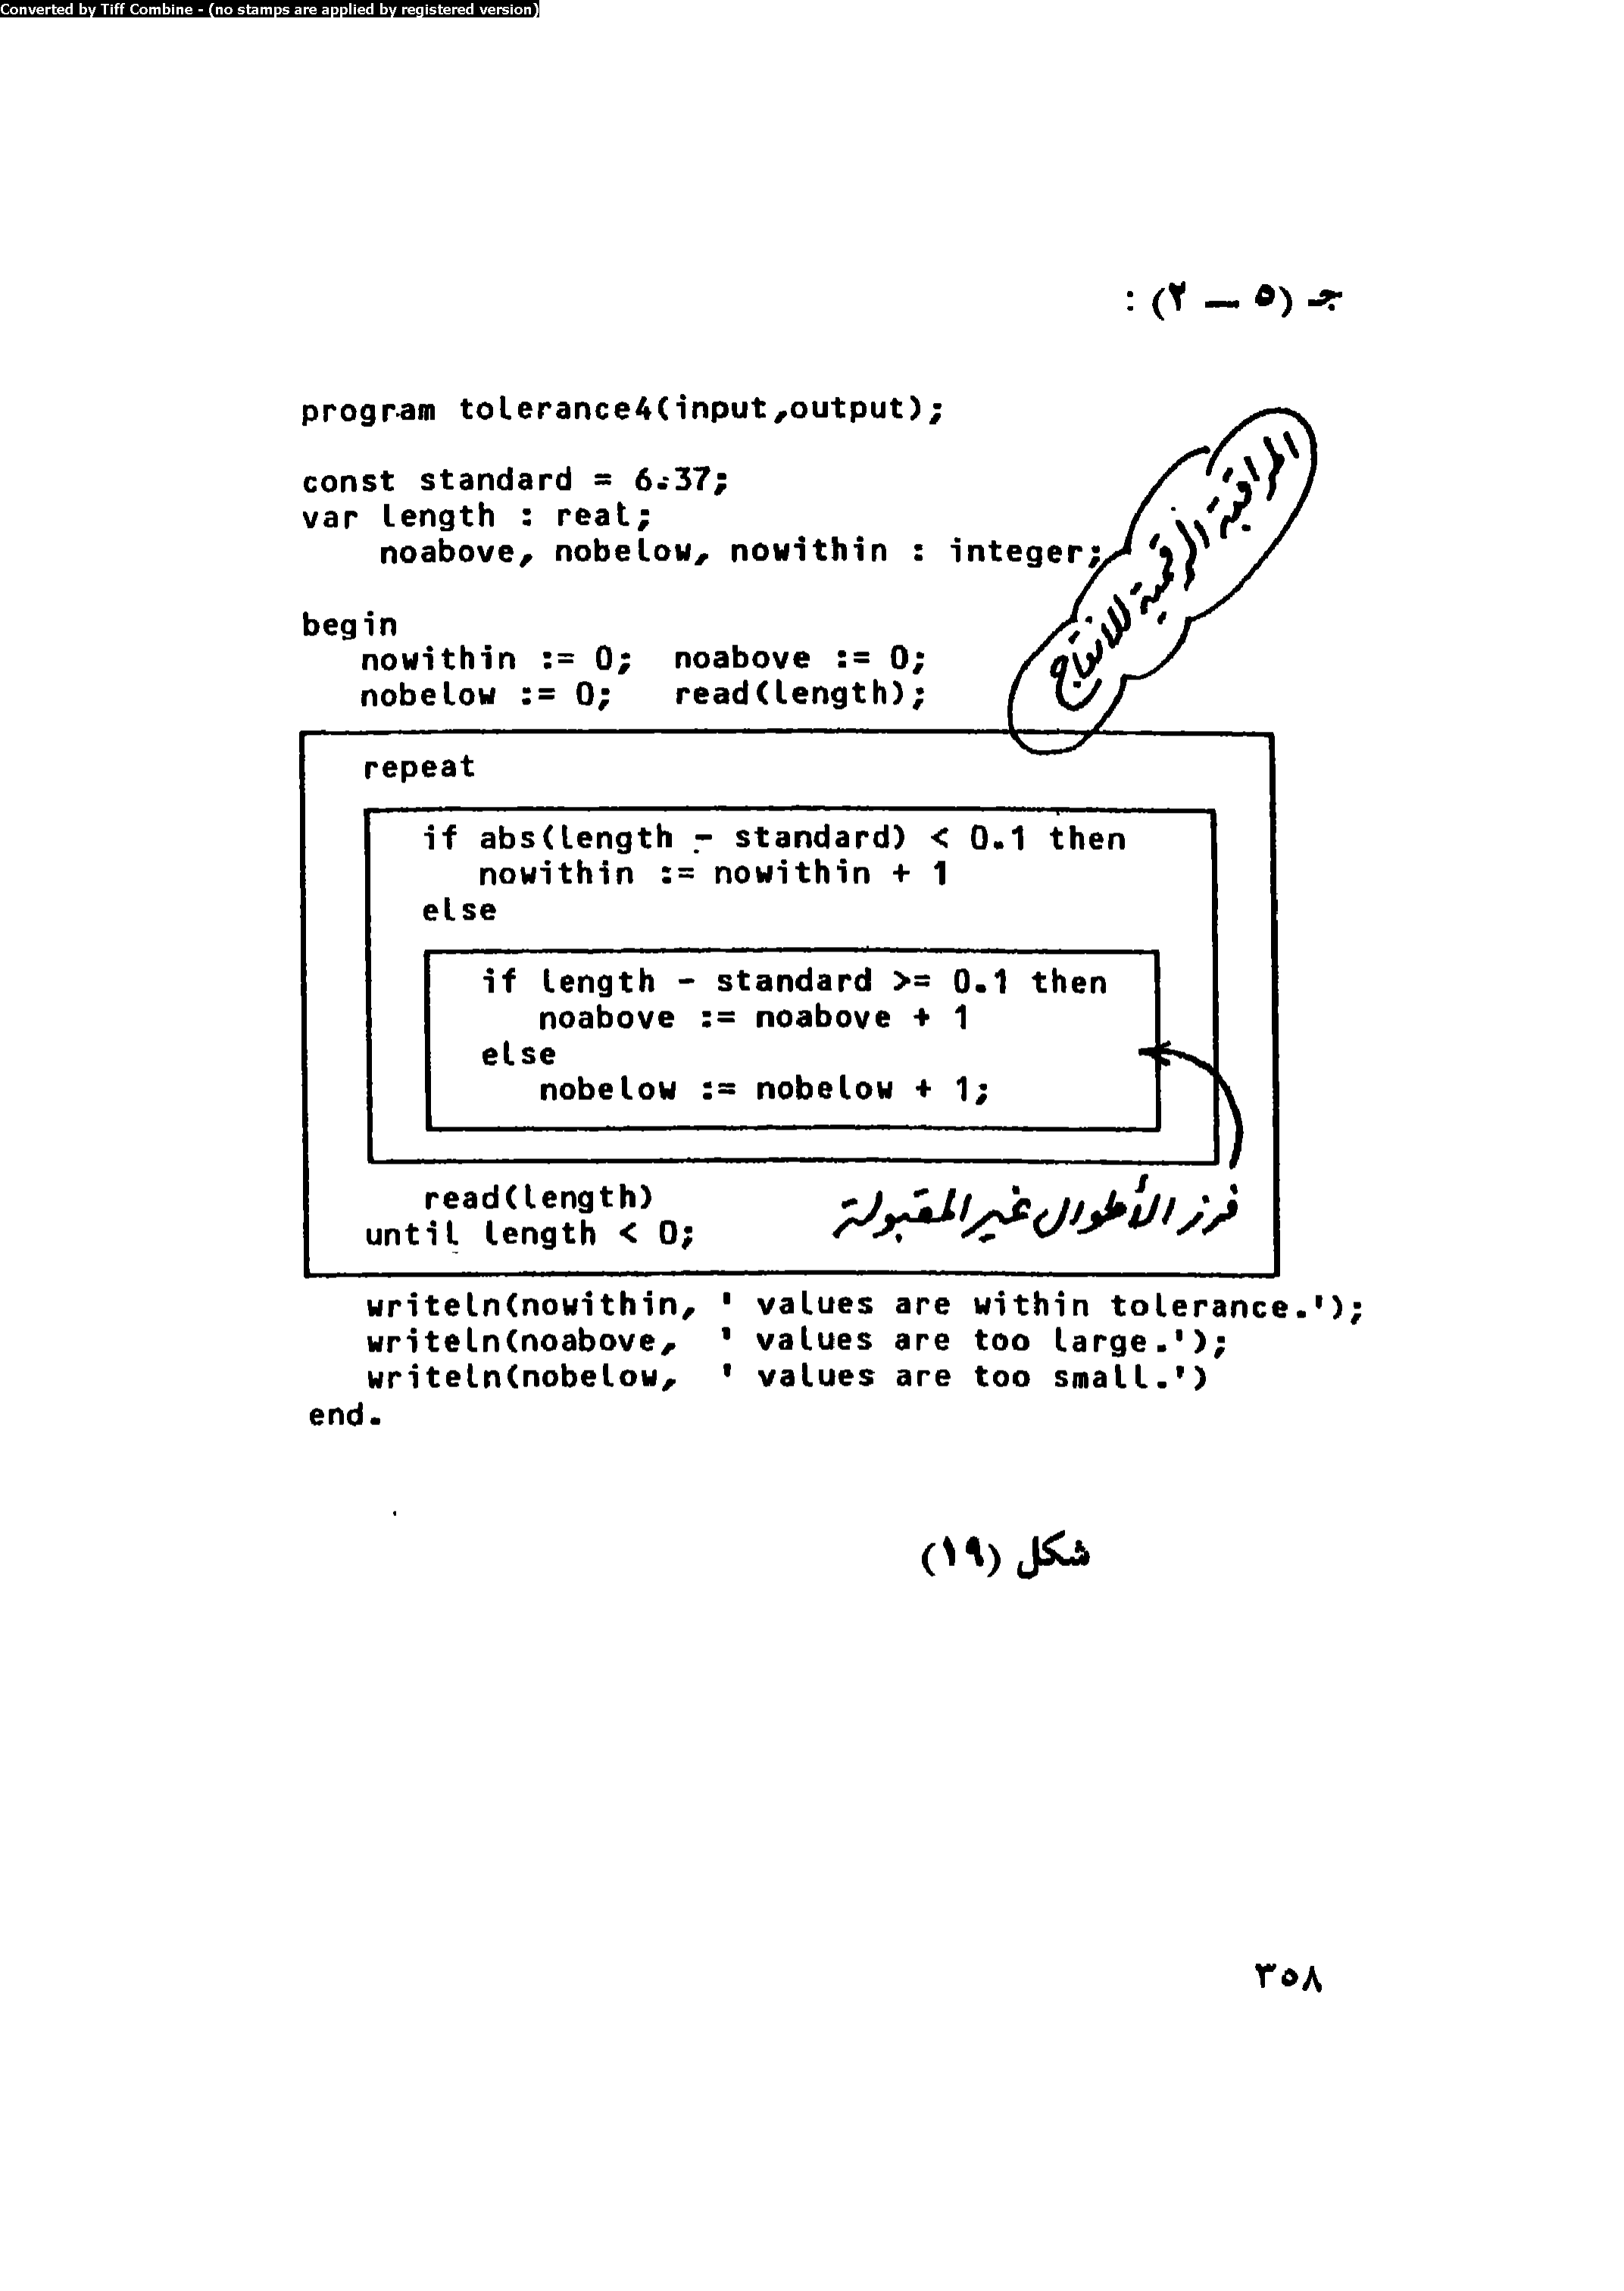 Converted by Tiff Combine - (no stamps are applied by registered version)
جـ (٥ — ٢) :
program tolerance4(input,output);
const standard = 6.37;
var length : real;
noabove, nobelow, nowithin : integer;
المراقبة الرقمية للانتاج
begin
nowithin := 0;  noabove := 0;
nobelow := 0;   read(length);
repeat
if abs(length - standard) < 0.1 then
nowithin := nowithin + 1
else
if length - standard >= 0.1 then
noabove := noabove + 1
else
nobelow := nobelow + 1;
read(length)
فرز الأطوال غير المقبولة
until length < 0;
writeln(nowithin, ' values are within tolerance.');
writeln(noabove,  ' values are too large.');
writeln(nobelow,  ' values are too small.')
end.
شكل (١٩)
٣٥٨